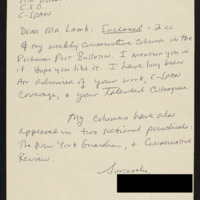 C.E.O.
C-SPAN
Dear Mr. Lamb: Enclosed - 2 cc
of my weekly conservative column in the
Post Bulletin. I mention you
in it. Hope you like it. I have long been
an admirer of your work, C-SPAN
coverage, & your talented colleagues.
My columns have also
appeared in two national periodicals:
The New York Guardian, & Conservative
Review.
Sincerely,